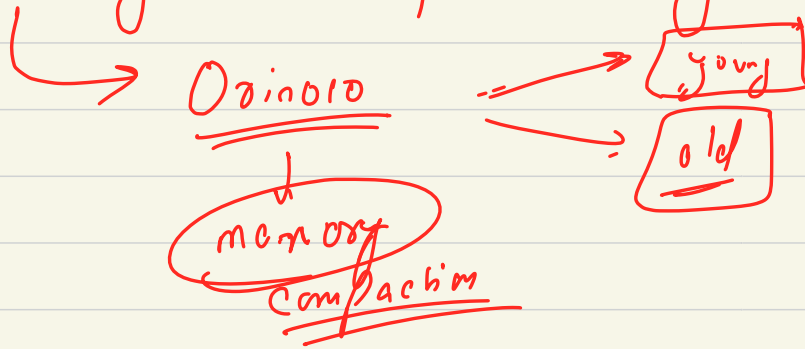 Orinoco
young
old
memory
compaction